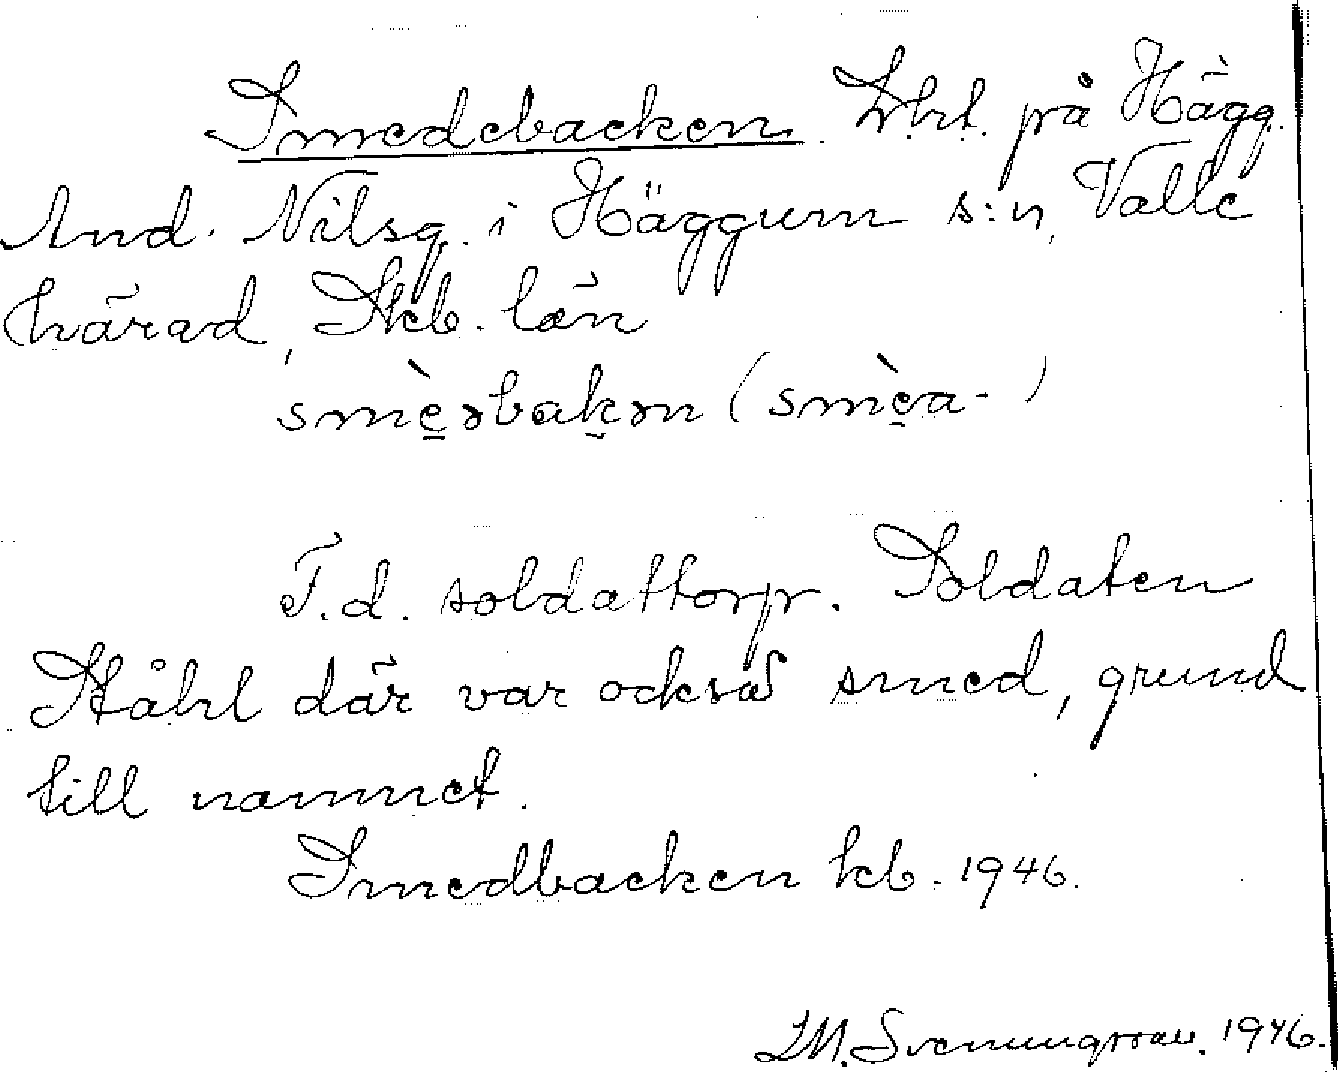 Smedebacken. Lht. på Hägg.
And. Nilsg. i Häggum s:n, Valle
härad, Skb. län
smè̱əbak̬ən (smè̬a- )
F.d. soldattorp. Soldaten
Ståhl där var också smed, grund
till namnet.
Smedbacken kb. 1946.
LM. Svenungsson. 1946.